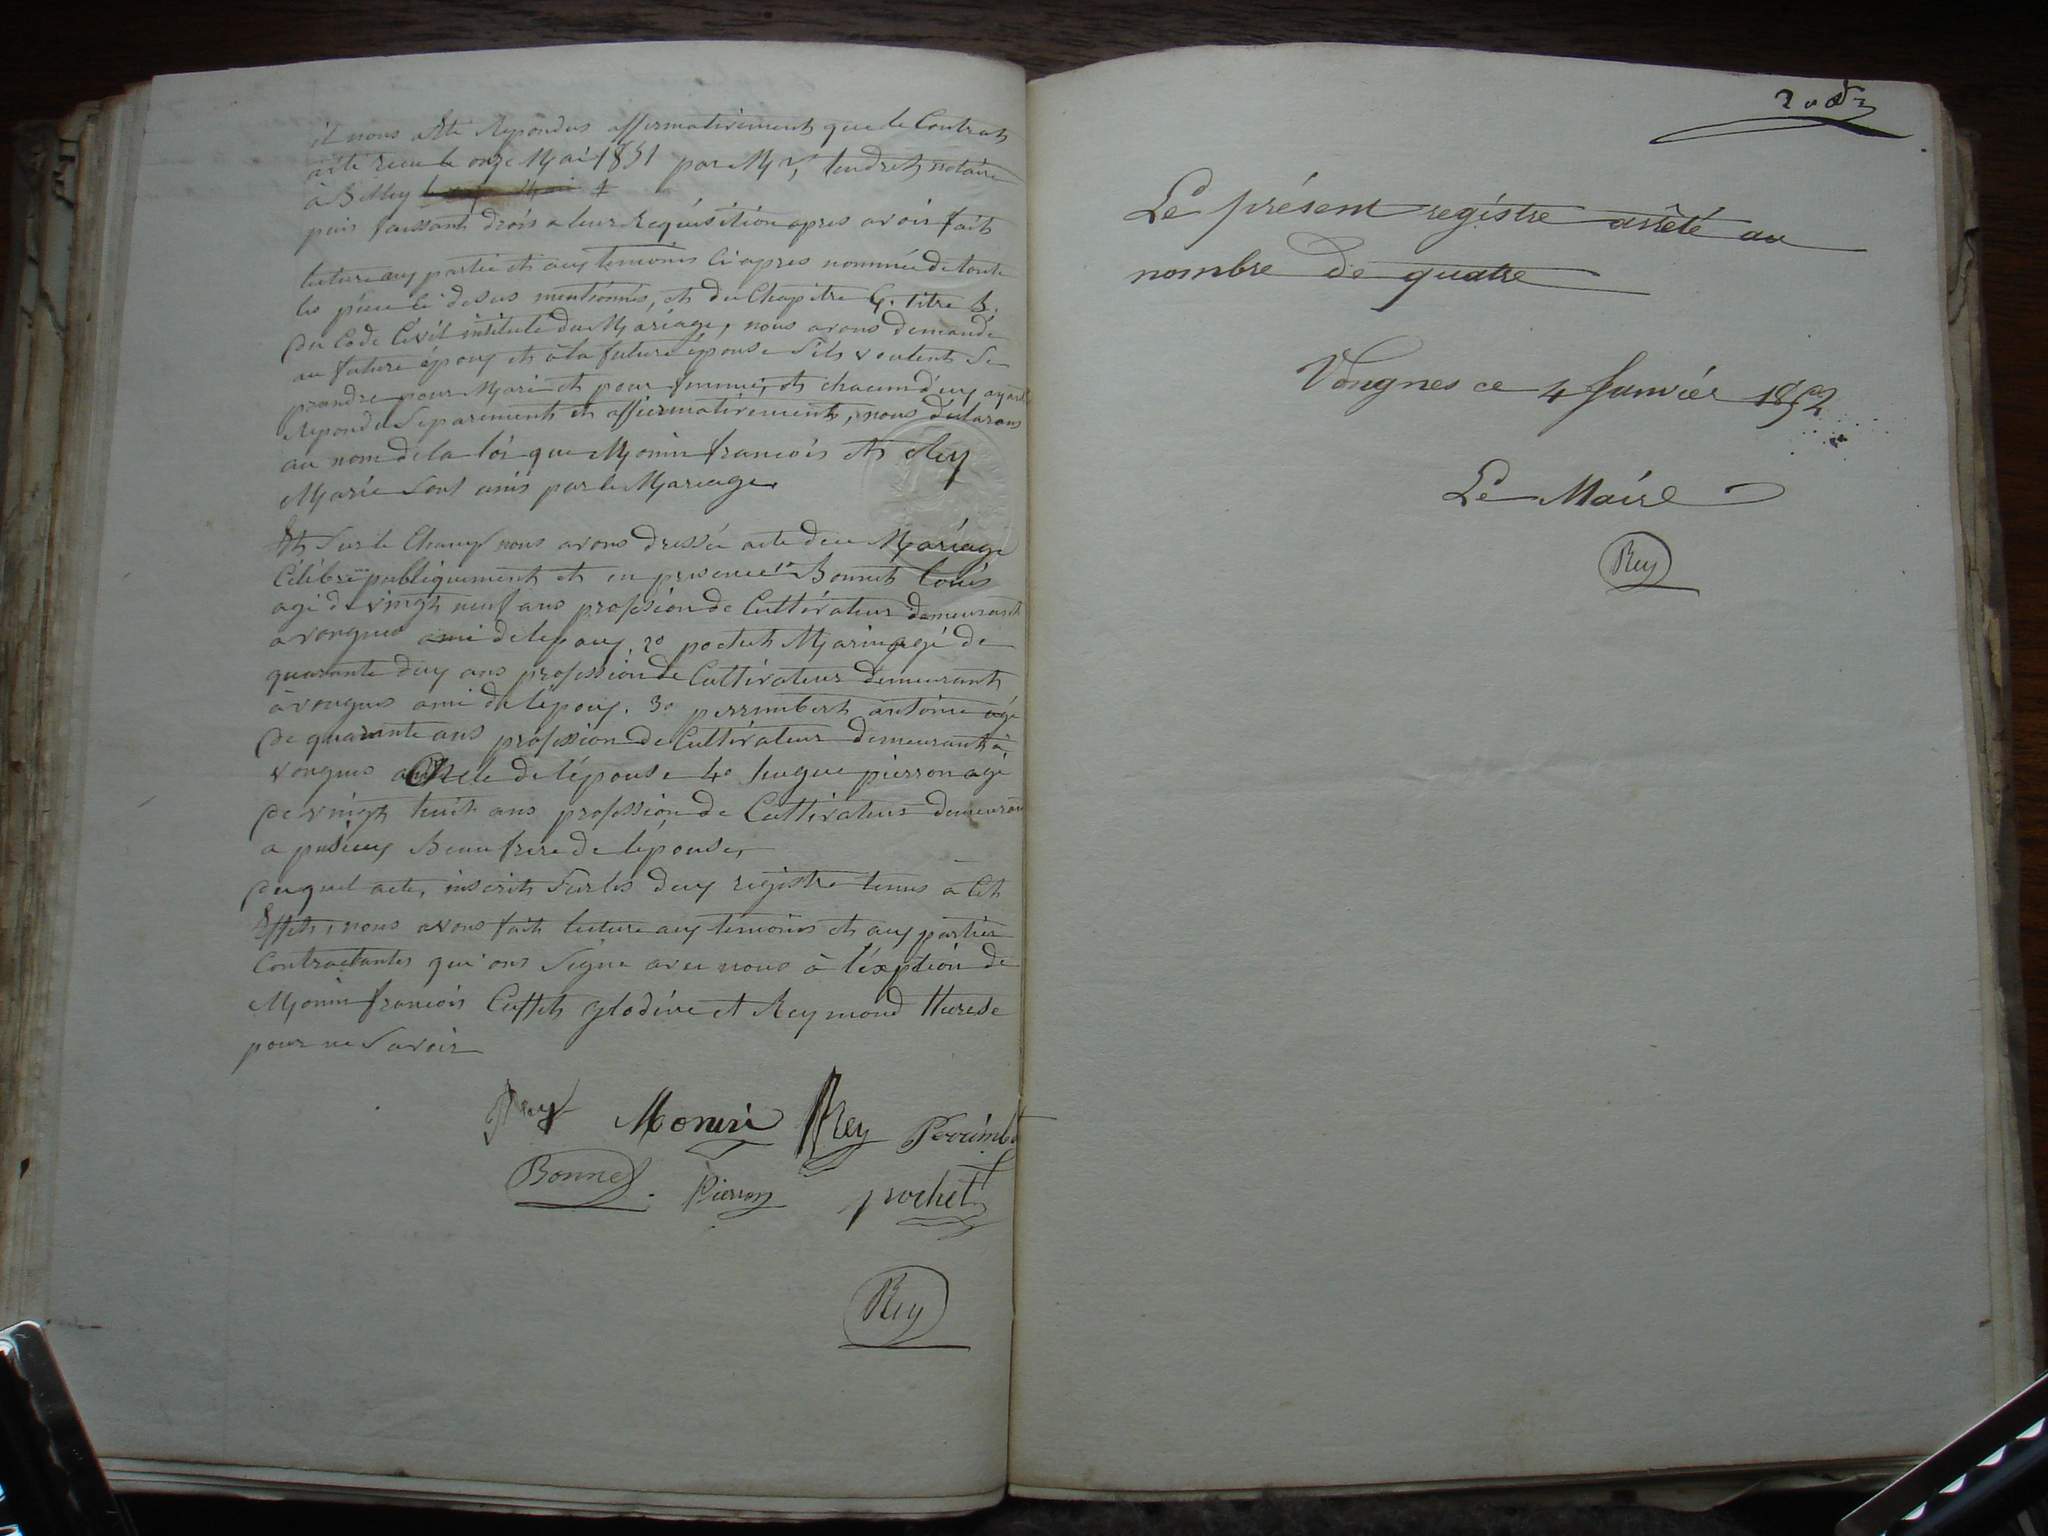 il nous a été Repondus affirmativement que le Contrat
a été recu le onze Mai 1851 par Me tendret notaire
à Belley
puis faissant droit a leur Requisition apres avoir fait
lecture aux partie et aux temoins ci apres nommée de toute
les piece ci desus mentionnés, et du Chapitre 6. titre 5.
du Code Civil intitulé du Mariage, nous avons demandé
au future époux et à la future épouse S'ils veulent Se
prendre pour Mari et pour femme, et chacun d'eux ayant
Repondu Separément et affirmativement, nous déclarons
au nom de la loi que Monin francois et Rey
Marie Sont unis par le Mariage.
Et Sur le Champ nous avons dressée acte du Mariage
Célébré publiquement et en presence 1o Bonnet louis
agé de vingt neuf ans profession de Cultivateur demeurant
a vongnes ami de lepoux, 2o pochet Marin agé de
quarante deux ans profession de Cultivateur demeurant
à vongnes ami de l'époux. 3o perrimbert antoine agé
de quarante ans profession de Cultivateur demeurant à
vongnes Oncle de l'épouse 4o hugue pierron agé
de vingt huit ans profession de Cultivateur demeurant
a pusieux Beau frere de l'épouse,
duquel acte, inscrit Sur les deux registre tenus à Cet
Effet, nous avons fait lecture aux temoins et aux parties
Contractantes qui ons Signé avec nous à l'éxption de
Monin francois Cuffet glodine et Reymond therese
pour ne Savoir
Rey Monin Rey Perrimb
Bonnet Pierron pochet
Rey
Le présent registre arrêté au
nombre de quatre
Vongnes ce 4 Janvier 1852
Le Maire
Rey